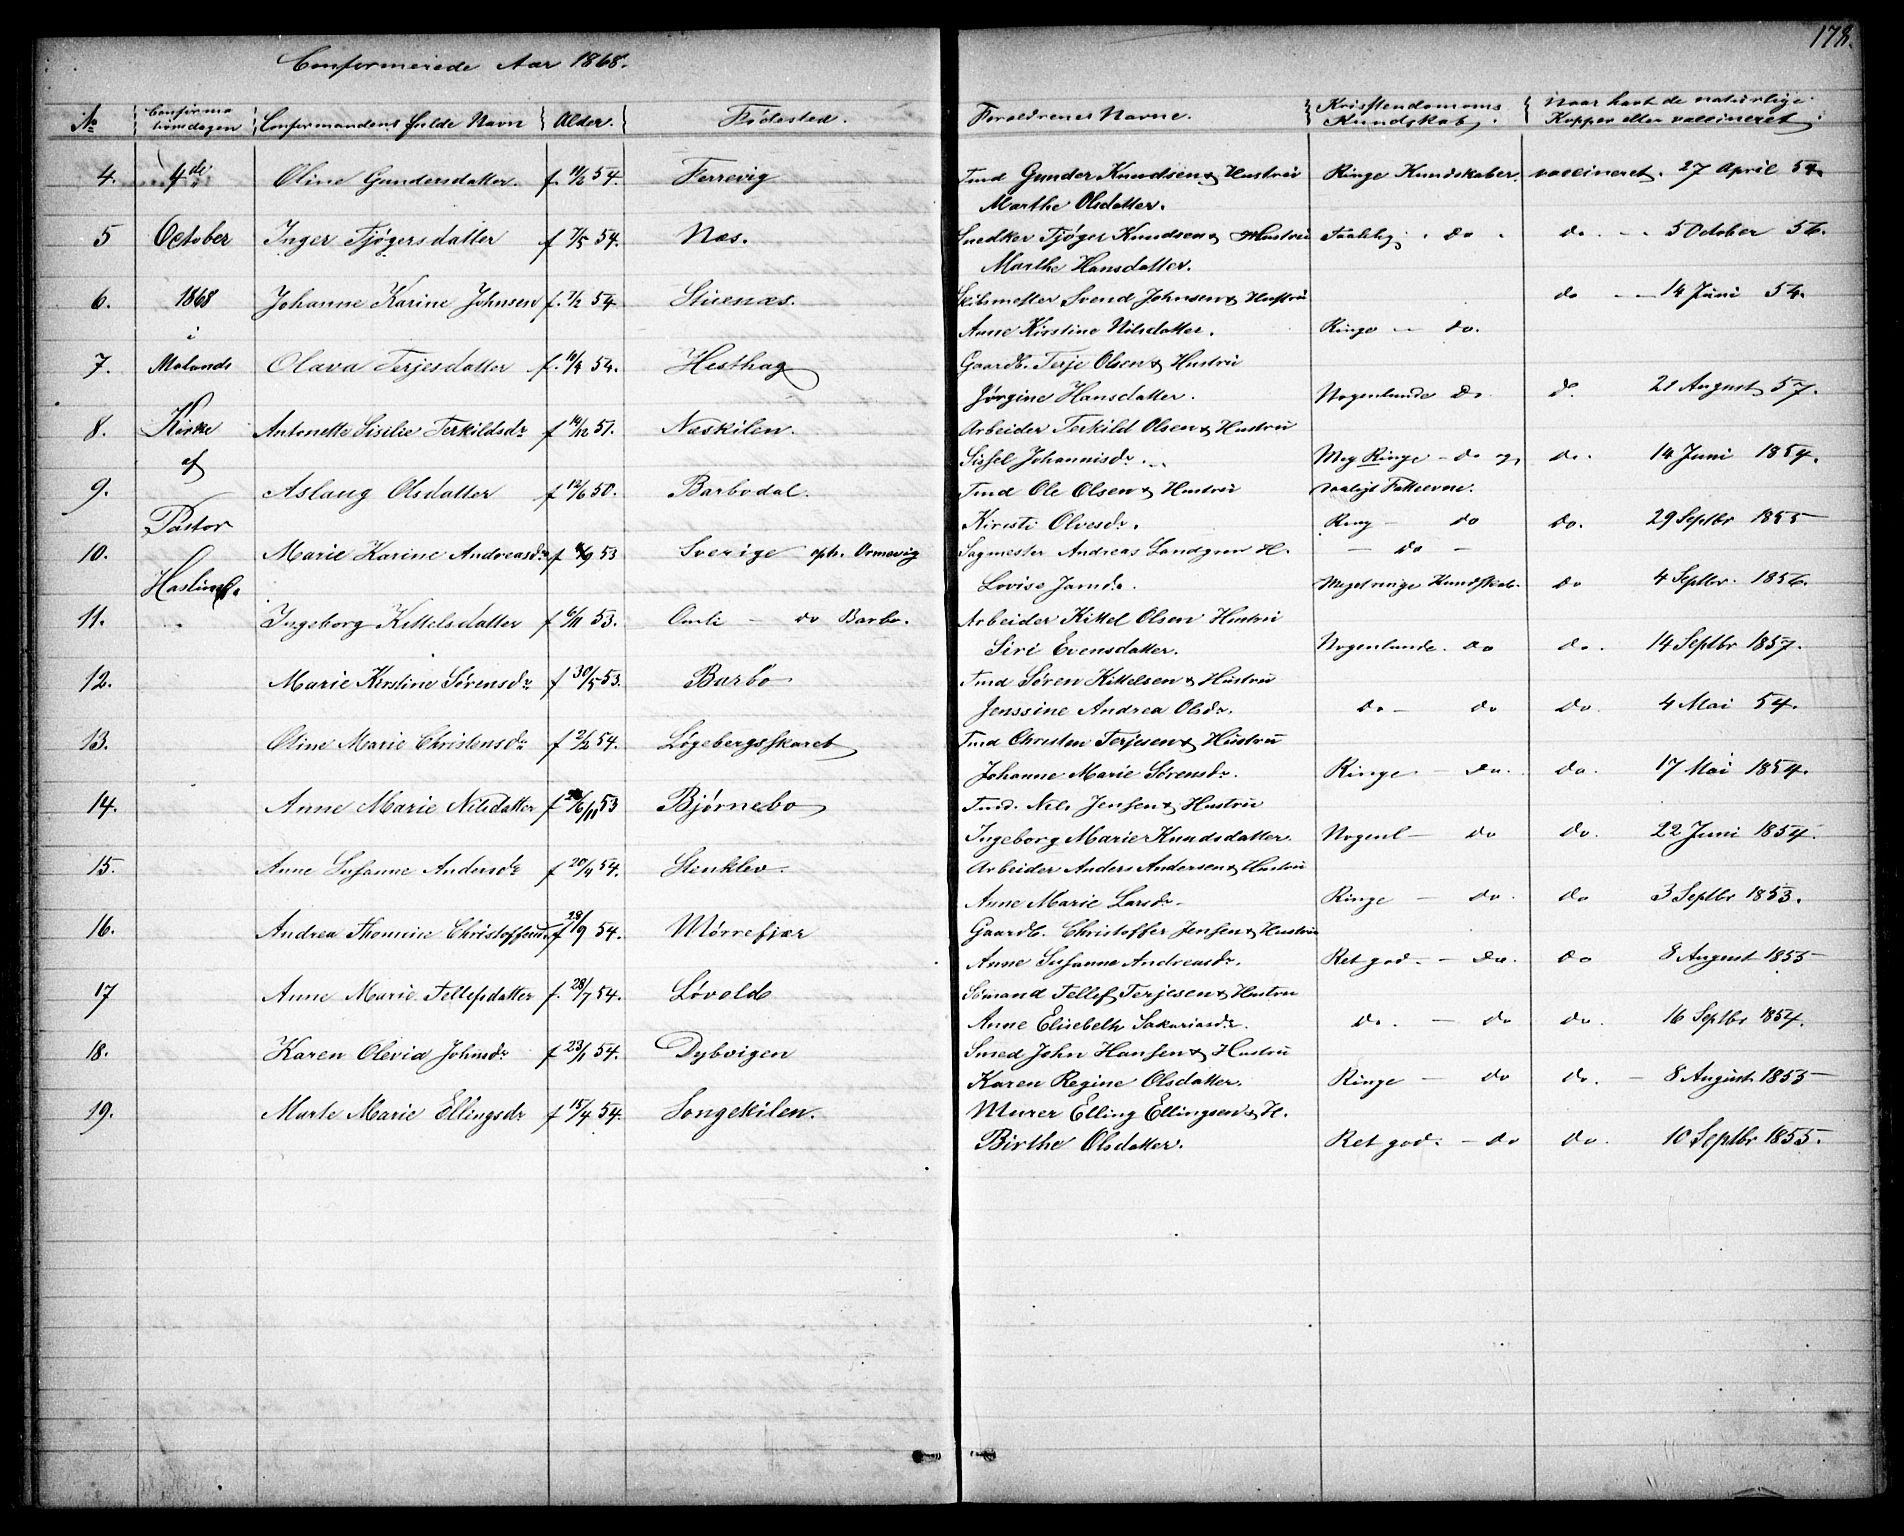 178.
Conformerede Aar 1868.
No Confirmationsdagen Conformandens fulde Navn Alder. Födested. Foreldrenes Navne. Kristendomoms Kundskab. Naar havt de naturlige Kopper eller vaccineret
4. 4de Oline Gundersdatter. f. 11/2 54. Ferrevig Tmd Gunder Knudsen & Hustru Ringe Kundskaber. vaccineret. 27 April 54.
Marthe Olsdatter.
5 October Inger Tjøgersdatter f 7/5 54. Næs. Snedker Tjøger Knudsen & Hustru Taalelig. do do. 5 October 56.
Marthe Hansdatter.
6. 1868 Johanne Karine Johnsen f. 7/2 54 Stuenæs. Skibmester Svend Johnsen & Hustru do 14 Juni 54.
i Anne Kirstine Nilsdatter. Ringe do.
7. Molands Olava Terjesdatter f. 54. Hesthag Gaardb. Terje Olsen & Hustru
Jørgine Hansdatter. Nogenlunde Do. d. 21 August 57.
8. Kirke Antonette Sisilie Terkildsdr f 14/12 51. Neskilen. Arbeider Terkild Olsen & Hustru
af Sissel Johannisdr. Meg Ringe - do og do. 14 Juni 1854.
9. Aslaug Olsdatter f 12/6 50. Barbodal. Tmd Ole Olsen & Hustru svaligt Fatteevne.
Pastor Kirsti Olvesdr. Ring - do do. 29 Septbr 1855
10. Marie Karine Andreasdr f 9 53 Sverige oph. Ormevig Sagmester Andreas Landgren H. - do -
Lovise Jansdr. Meget ringe Kundskab. do 4 Septbr. 1856.
11. Ingeborg Kittelsdatter f 6/11 53. Omli - do Barbo. Arbeider Kittel Olsen Hustru
Siri Evensdatter. Nogenlunde. do do. 14 Septbr 1857.
12. Marie Kirstine Sørensdr f 30/5 53. Barbo Tmd Søren Kittelsen & Hustru
Jenssine Andrea Olsdr. do - do do. 4 Mai 54.
13. Oline Marie Christensdr f 2/2 54. Løgebergsskaret Tmd Christen Terjesen & Hustru
Johanne Marie Sørensdr. Ringe - do. do. 17 Mai 1854.
14. Anne Marie Nilsdatter f /11 53 Bjørnebo Tmd. Nils Jensen & Hustru
Ingeborg Marie Knudsdatter. Nogenl - do do. 22 Juni 1854.
15. Anne Susanne Andersdr f 20/4 54. Stenklev Arbeider Anders Andersen & Hustru
Anne Marie Larsdr. Ringe - do. do 3 Septbr 1853.
16. Andrea Thomine Christoffersdr f 28/9 54. Mørrefjær Gaardb. Christoffer Jensen & Hustru
Anne Susanne Andreasdr. Ret god. - do. do 8 August 1855
17 Anne Marie Tellefsdatter f. 28/7 54. Løvold Sömand Tellef Terjesen & Hustru
Anne Elisebeth Sakariasdr. do. - do do. 16 Septbr 1854.
18. Karen Olevia Johnsdr f 23/1 54. Dybvigen Smed John Hansen & Hustru
Karen Regine Olsdatter. Ringe - do do. - 8 August 1855
19. Marte Marie Ellingsdr f 15/4 54. Songekilen. Murer Elling Ellingsen & H.
Birthe Olsdatter. Ret god. - do do. 10 Septbr 1855.